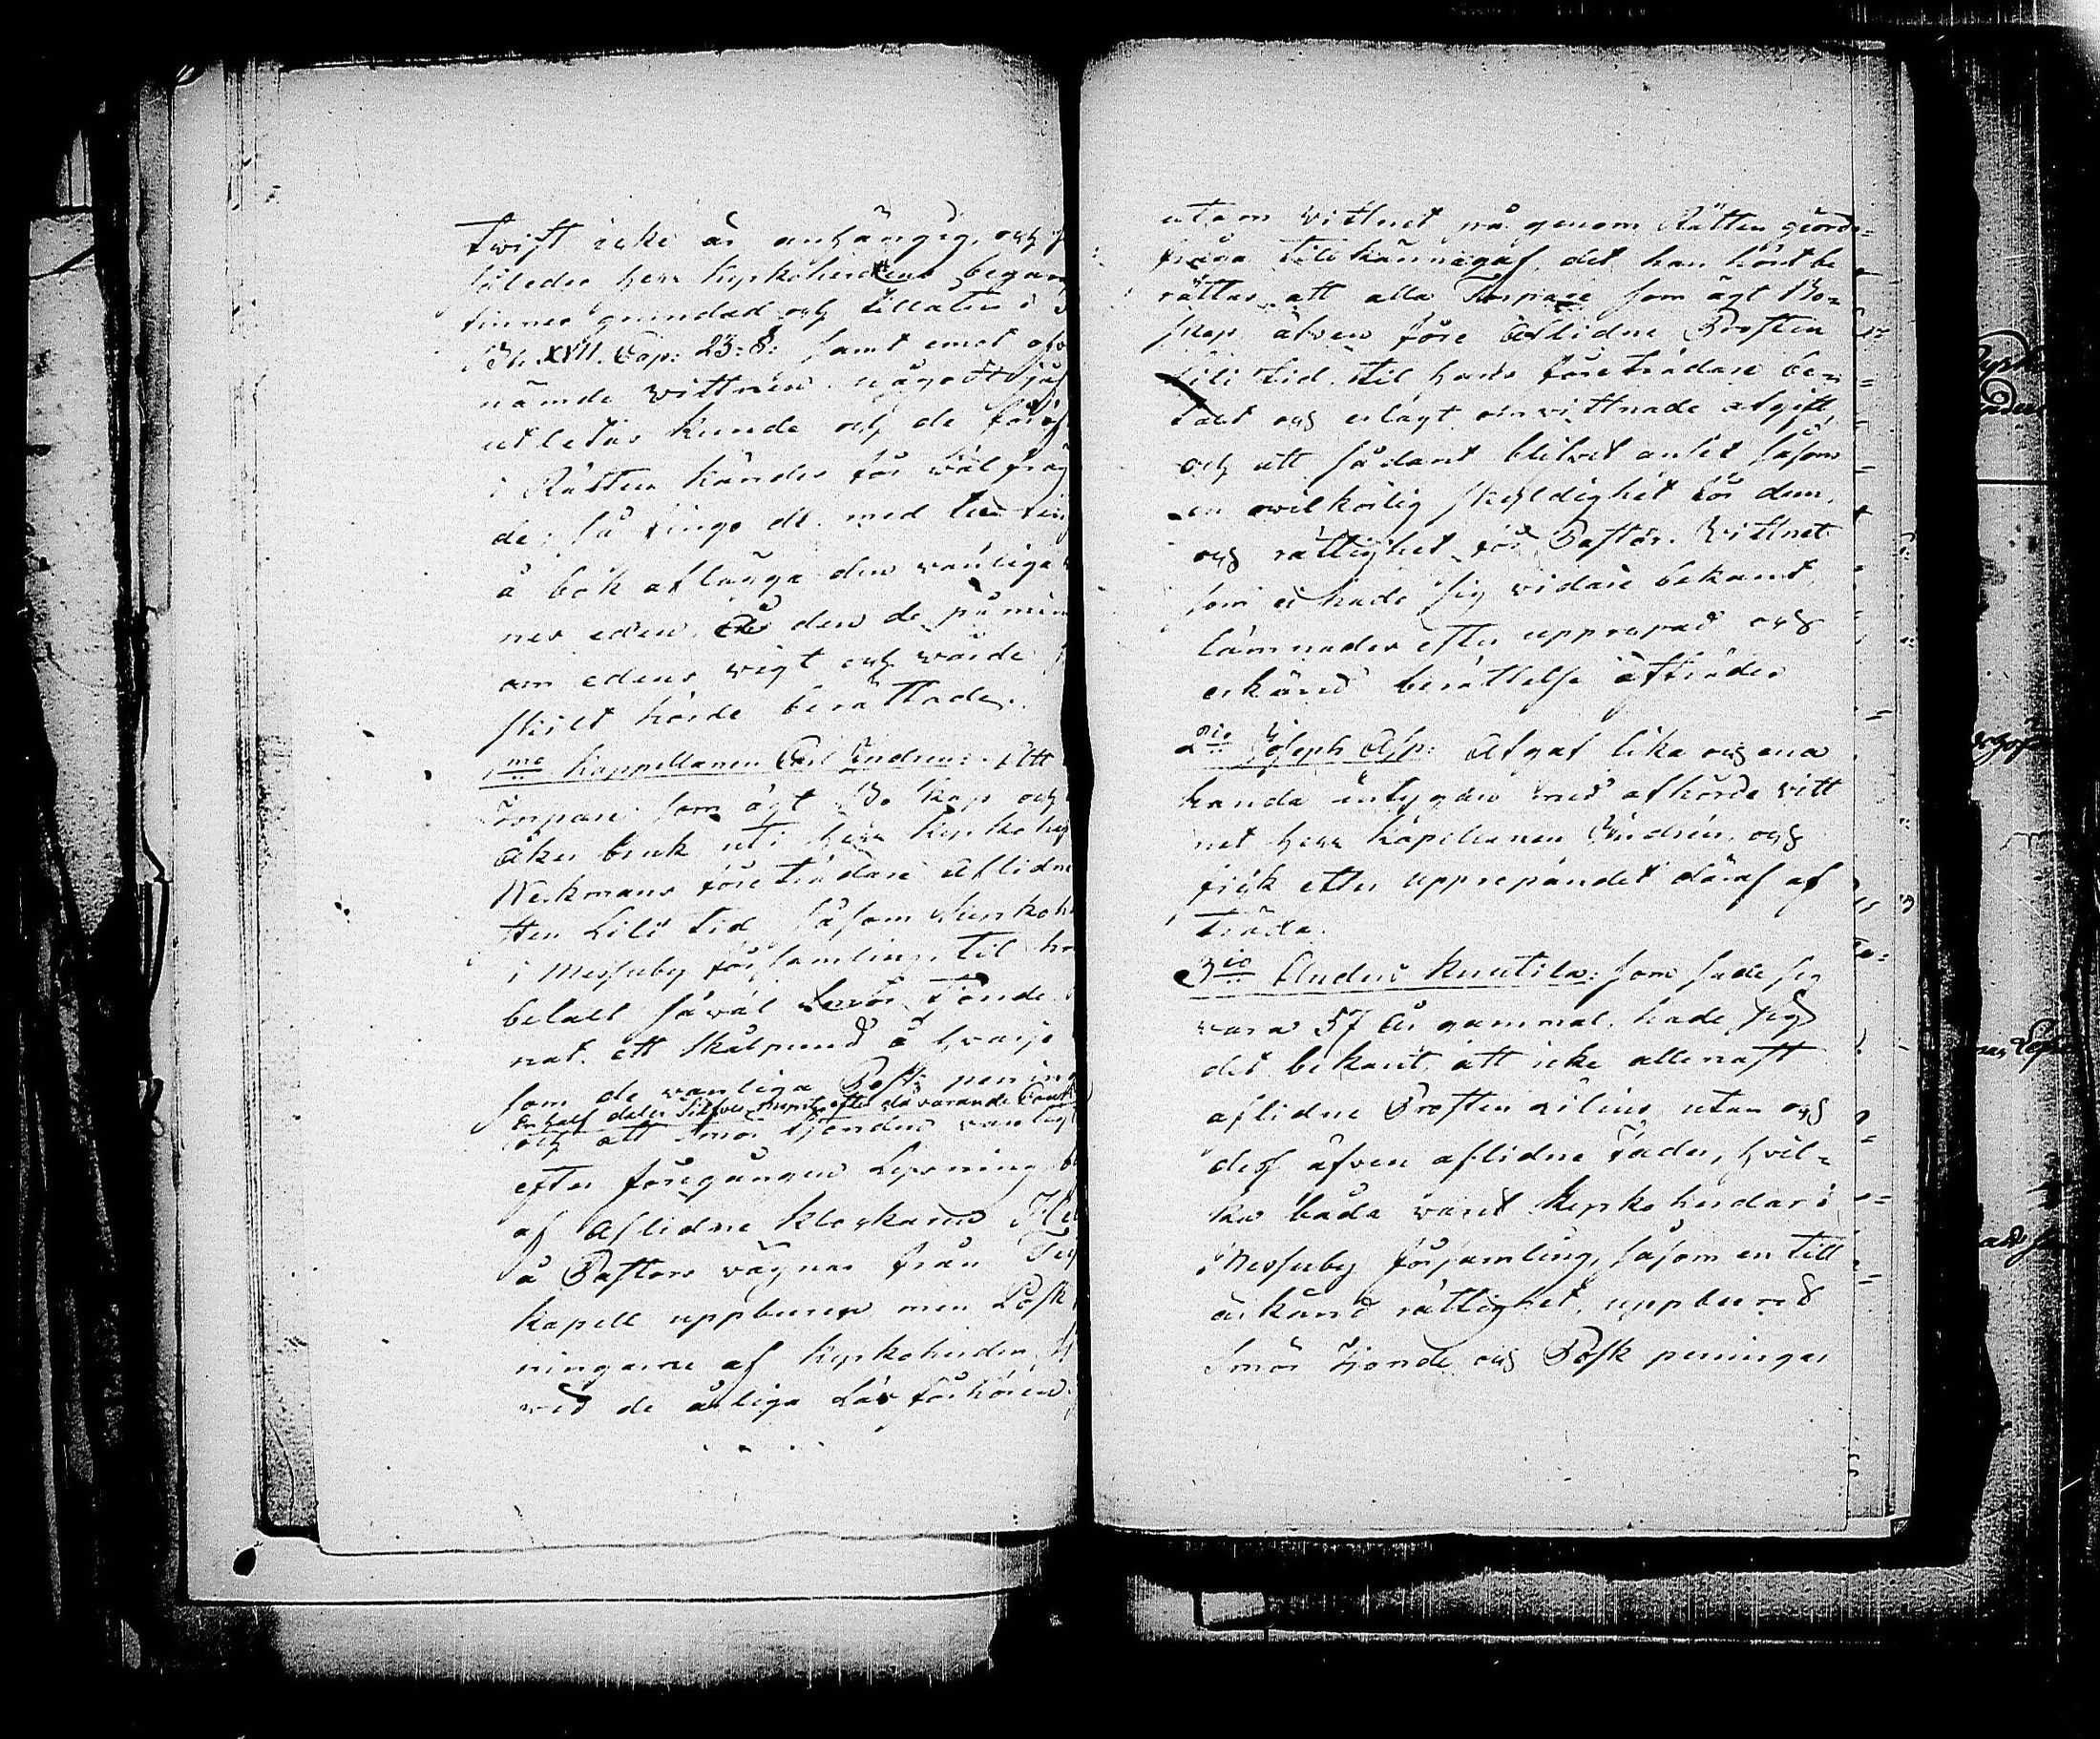 twist icke är anhängig, och
således Herr Kyrkoherdens begäran
finnes grundad och tillåten i
R.B. XVII. Cap: 23. §: samt emot of
nämde vittnen något jäf
utletas kunde och de
i Rätten kändes för wälfräg
de; så fingo de med
å bok aflägga den vanliga
nes eden, den de påmin
om edens vigt och värde
skilt hörde berättade.
1mo Kappellanen Carl Indren: Att
Torpare som ägt Boskap och
åker bruk uti Herr Kyrkoher
Weckmans företrädare Aflidne
sten Lilii tid såsom Kyrkoh
i Messuby församling, til
betalt såväl Smör Tionde
nat. ett skålpund å hvarje
som de vanliga Påsk pennin
En half deler Silfver Kopek efter då varande Cours
och att smör tionden vanlig
efter föregången Lysning
af Aflidne Klockaren
å Pastors vägnar från
Kapell uppburen men Påsk
ningarne af Kyrkoherden
vid de årliga Läsförhören.
utom vittnet på genom Rätten giorde
fråga tillkännagaf, det han hört be
rättas att alla Torpare som ägt Bo=
skap äfven före Aflidne Prosten
Lilii tid, til hans företrädare be=
talt och erlagt omvittnade afgift
och att sådant blifvit anset såsom
en ovilkorlig skyldighet för dem,
och rättighet för Pastor. Vittnet
som ei hade sig vidare bekant,
lämnades efter upprepad och
erkänd berättelse afträda
2do Joseph Asp: Afgaf lika och ena
handa intygan med afhörde vitt
net Herr Kapellanen Indren, och
fick efter upprepandet däraf af
träda.
3io Anders Knutila: som sade sig
vara 57 år gammal, hade sig
det bekant, att icke allenast
aflidne Prosten Lilius utan och
dess äfven aflidne Fader, hvil=
ka båda varit Kyrkoherdar i
Messuby församling, såsom en till
ärkänd rättighet, uppburit
Smör Tionde och Påsk penningar